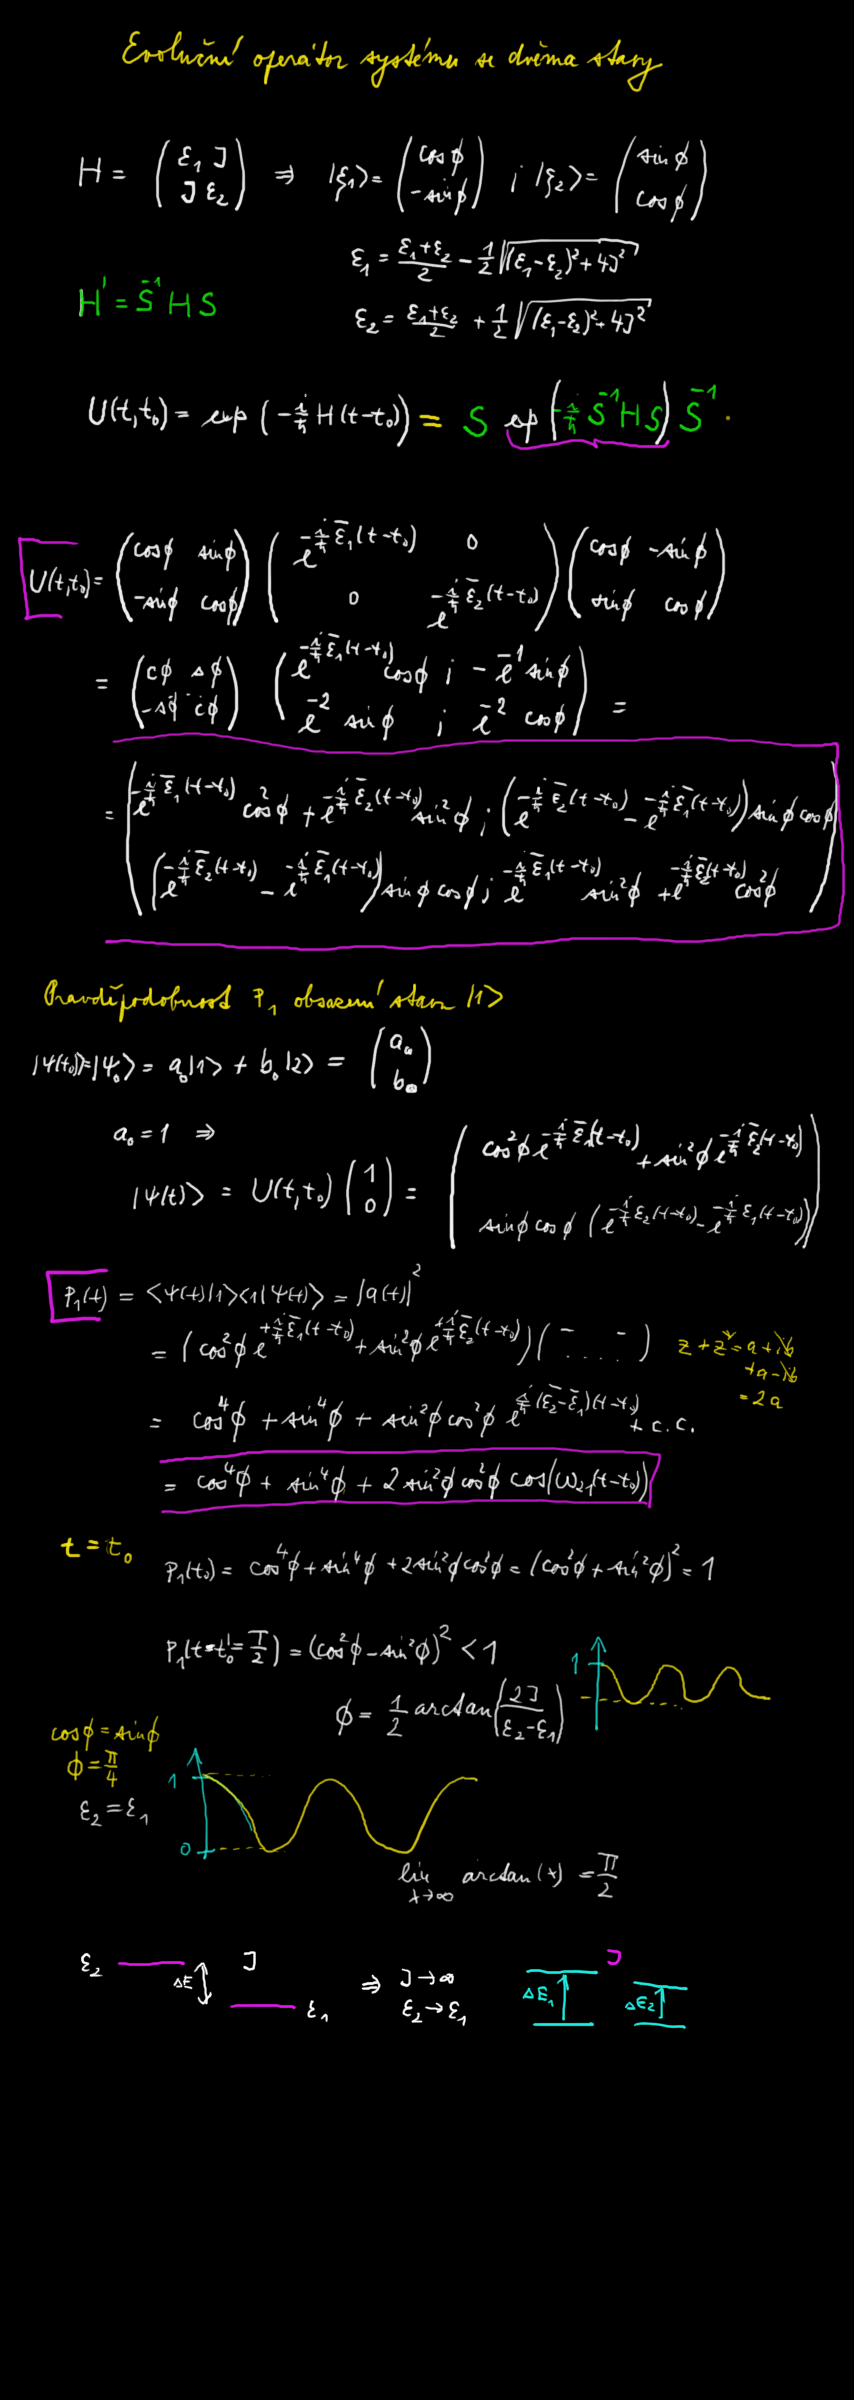 Evoluční operátor systému se dvěma stavy
H = (ε₁ J; J ε₂) ⇒ |ξ₁> = (cosϕ; -sinϕ) ; |ξ₂> = (sinϕ; cosϕ)
ε₁ = (ε₁+ε₂)/2 - 1/2 √((ε₁-ε₂)²+4J²)
H' = S⁻¹ H S
ε₂ = (ε₁+ε₂)/2 + 1/2 √((ε₁-ε₂)²+4J²)
U(t,t₀) = exp(-i/ħ H(t-t₀)) = S exp(-i/ħ S⁻¹HS) S⁻¹
U(t,t₀) = (cosϕ sinϕ; -sinϕ cosϕ) (e^{-i/ħ ε̄₁(t-t₀)} 0; 0 e^{-i/ħ ε̄₂(t-t₀)}) (cosϕ -sinϕ; sinϕ cosϕ)
= (cϕ sϕ; -sϕ cϕ) (e^{-i/ħ ε̄₁(t-t₀)} cosϕ ; -e^{-1} sinϕ; e^{-2} sinϕ ; e^{-2} cosϕ) =
= (e^{-i/ħ ε̄₁(t-t₀)} cos²ϕ + e^{-i/ħ ε̄₂(t-t₀)} sin²ϕ ; (e^{-i/ħ ε̄₂(t-t₀)} - e^{-i/ħ ε̄₁(t-t₀)}) sinϕ cosϕ
(e^{-i/ħ ε̄₂(t-t₀)} - e^{-i/ħ ε̄₁(t-t₀)}) sinϕ cosϕ ; e^{-i/ħ ε̄₁(t-t₀)} sin²ϕ + e^{-i/ħ ε̄₂(t-t₀)} cos²ϕ)
Pravděpodobnost P₁ obsazení stavu |1>
|Ψ(t₀)> = |Ψ₀> = a₀|1> + b₀|2> = (a₀; b₀)
a₀ = 1 ⇒
|Ψ(t)> = U(t,t₀) (1; 0) = (cos²ϕ e^{-i/ħ ε̄₁(t-t₀)} + sin²ϕ e^{-i/ħ ε̄₂(t-t₀)}; sinϕ cosϕ (e^{-i/ħ ε₂(t-t₀)} - e^{-i/ħ ε₁(t-t₀)}))
P₁(t) = <Ψ(t)|1><1|Ψ(t)> = |a(t)|²
= (cos²ϕ e^{+i/ħ ε̄₁(t-t₀)} + sin²ϕ e^{+i/ħ ε̄₂(t-t₀)}) (- - ....)
z + z* = a + ib
+a - ib
= 2a
= cos⁴ϕ + sin⁴ϕ + sin²ϕ cos²ϕ e^{i/ħ (ε̄₂-ε̄₁)(t-t₀)} + c.c.
= cos⁴ϕ + sin⁴ϕ + 2 sin²ϕ cos²ϕ cos(ω₂₁(t-t₀))
t = t₀
P₁(t₀) = cos⁴ϕ + sin⁴ϕ + 2 sin²ϕ cos²ϕ = (cos²ϕ + sin²ϕ)² = 1
P₁(t-t₀ = T/2) = (cos²ϕ - sin²ϕ)² < 1
1
ϕ = 1/2 arctan(2J/(ε₂-ε₁))
cosϕ = sinϕ
ϕ = π/4
ε₂ = ε₁
1
0
lim x→∞ arctan(x) = π/2
ε₂ ΔE J ε₁ ⇒ J → ∞
ε₂ → ε₁
J
ΔE₁ ΔE₂